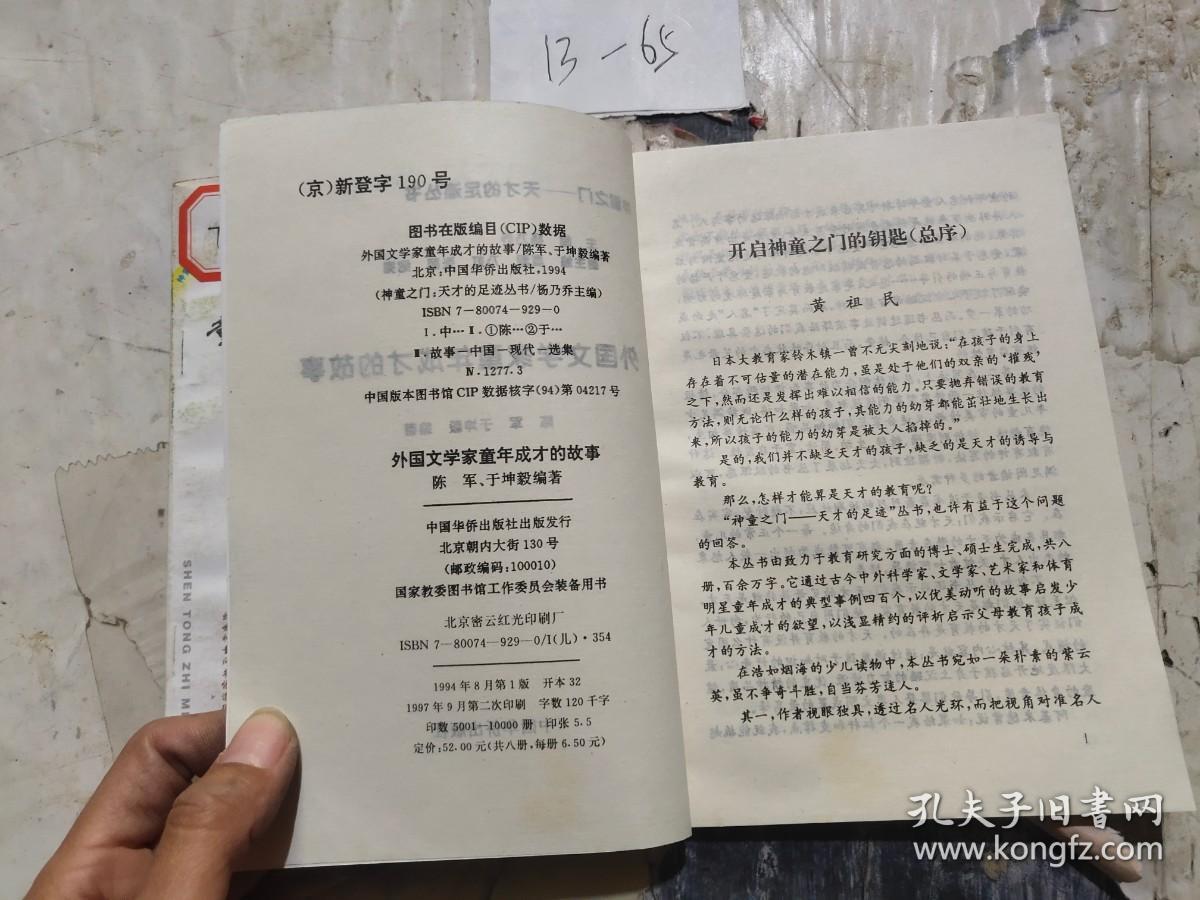 13-65
(京)新登字190号
图书在版编目(CIP)数据
外国文学家童年成才的故事/陈军、于坤毅编著
北京:中国华侨出版社.1994
(神童之门:天才的足迹丛书/杨乃乔主编)
ISBN 7-80074-929-0
Ⅰ.中…Ⅱ.①陈…②于…
Ⅲ.故事-中国-现代-选集
Ⅳ.1277.3
中国版本图书馆CIP数据核字(94)第04217号
外国文学家童年成才的故事
陈 军、于坤毅编著
中国华侨出版社出版发行
北京朝内大街130号
(邮政编码:100010)
国家教委图书馆工作委员会装备用书
北京密云红光印刷厂
ISBN 7-80074-929-0/I(儿)·354
1994年8月第1版 开本32
1997年9月第二次印刷 字数120千字
印数5001-10000册 印张5.5
定价:52.00元(共八册,每册6.50元)
SHEN TONG ZHI ME
开启神童之门的钥匙(总序)
黄祖民
日本大教育家铃木镇一曾不无尖刻地说:“在孩子的身上
存在着不可估量的潜在能力,虽是处于他们的双亲的‘摧残’
之下,然而还是发挥出难以相信的能力。只要抛弃错误的教育
方法,则无论什么样的孩子,其能力的幼芽都能茁壮地生长出
来,所以孩子的能力的幼芽是被大人掐掉的。”
是的,我们并不缺乏天才的孩子,缺乏的是天才的诱导与
教育。
那么,怎样才能算是天才的教育呢?
“神童之门——天才的足迹”丛书,也许有益于这个问题
的回答。
本丛书由致力于教育研究方面的博士、硕士生完成,共八
册,百余万字。它通过古今中外科学家、文学家、艺术家和体育
明星童年成才的典型事例四百个,以优美动听的故事启发少
年儿童成才的欲望,以浅显精约的评析启示父母教育孩子成
才的方法。
在浩如烟海的少儿读物中,本丛书宛如一朵朴素的紫云
英,虽不争奇斗胜,自当芬芳迷人。
其一,作者视眼独具,透过名人光环,而把视角对准名人
1
孔夫子旧書网
www.kongfz.com